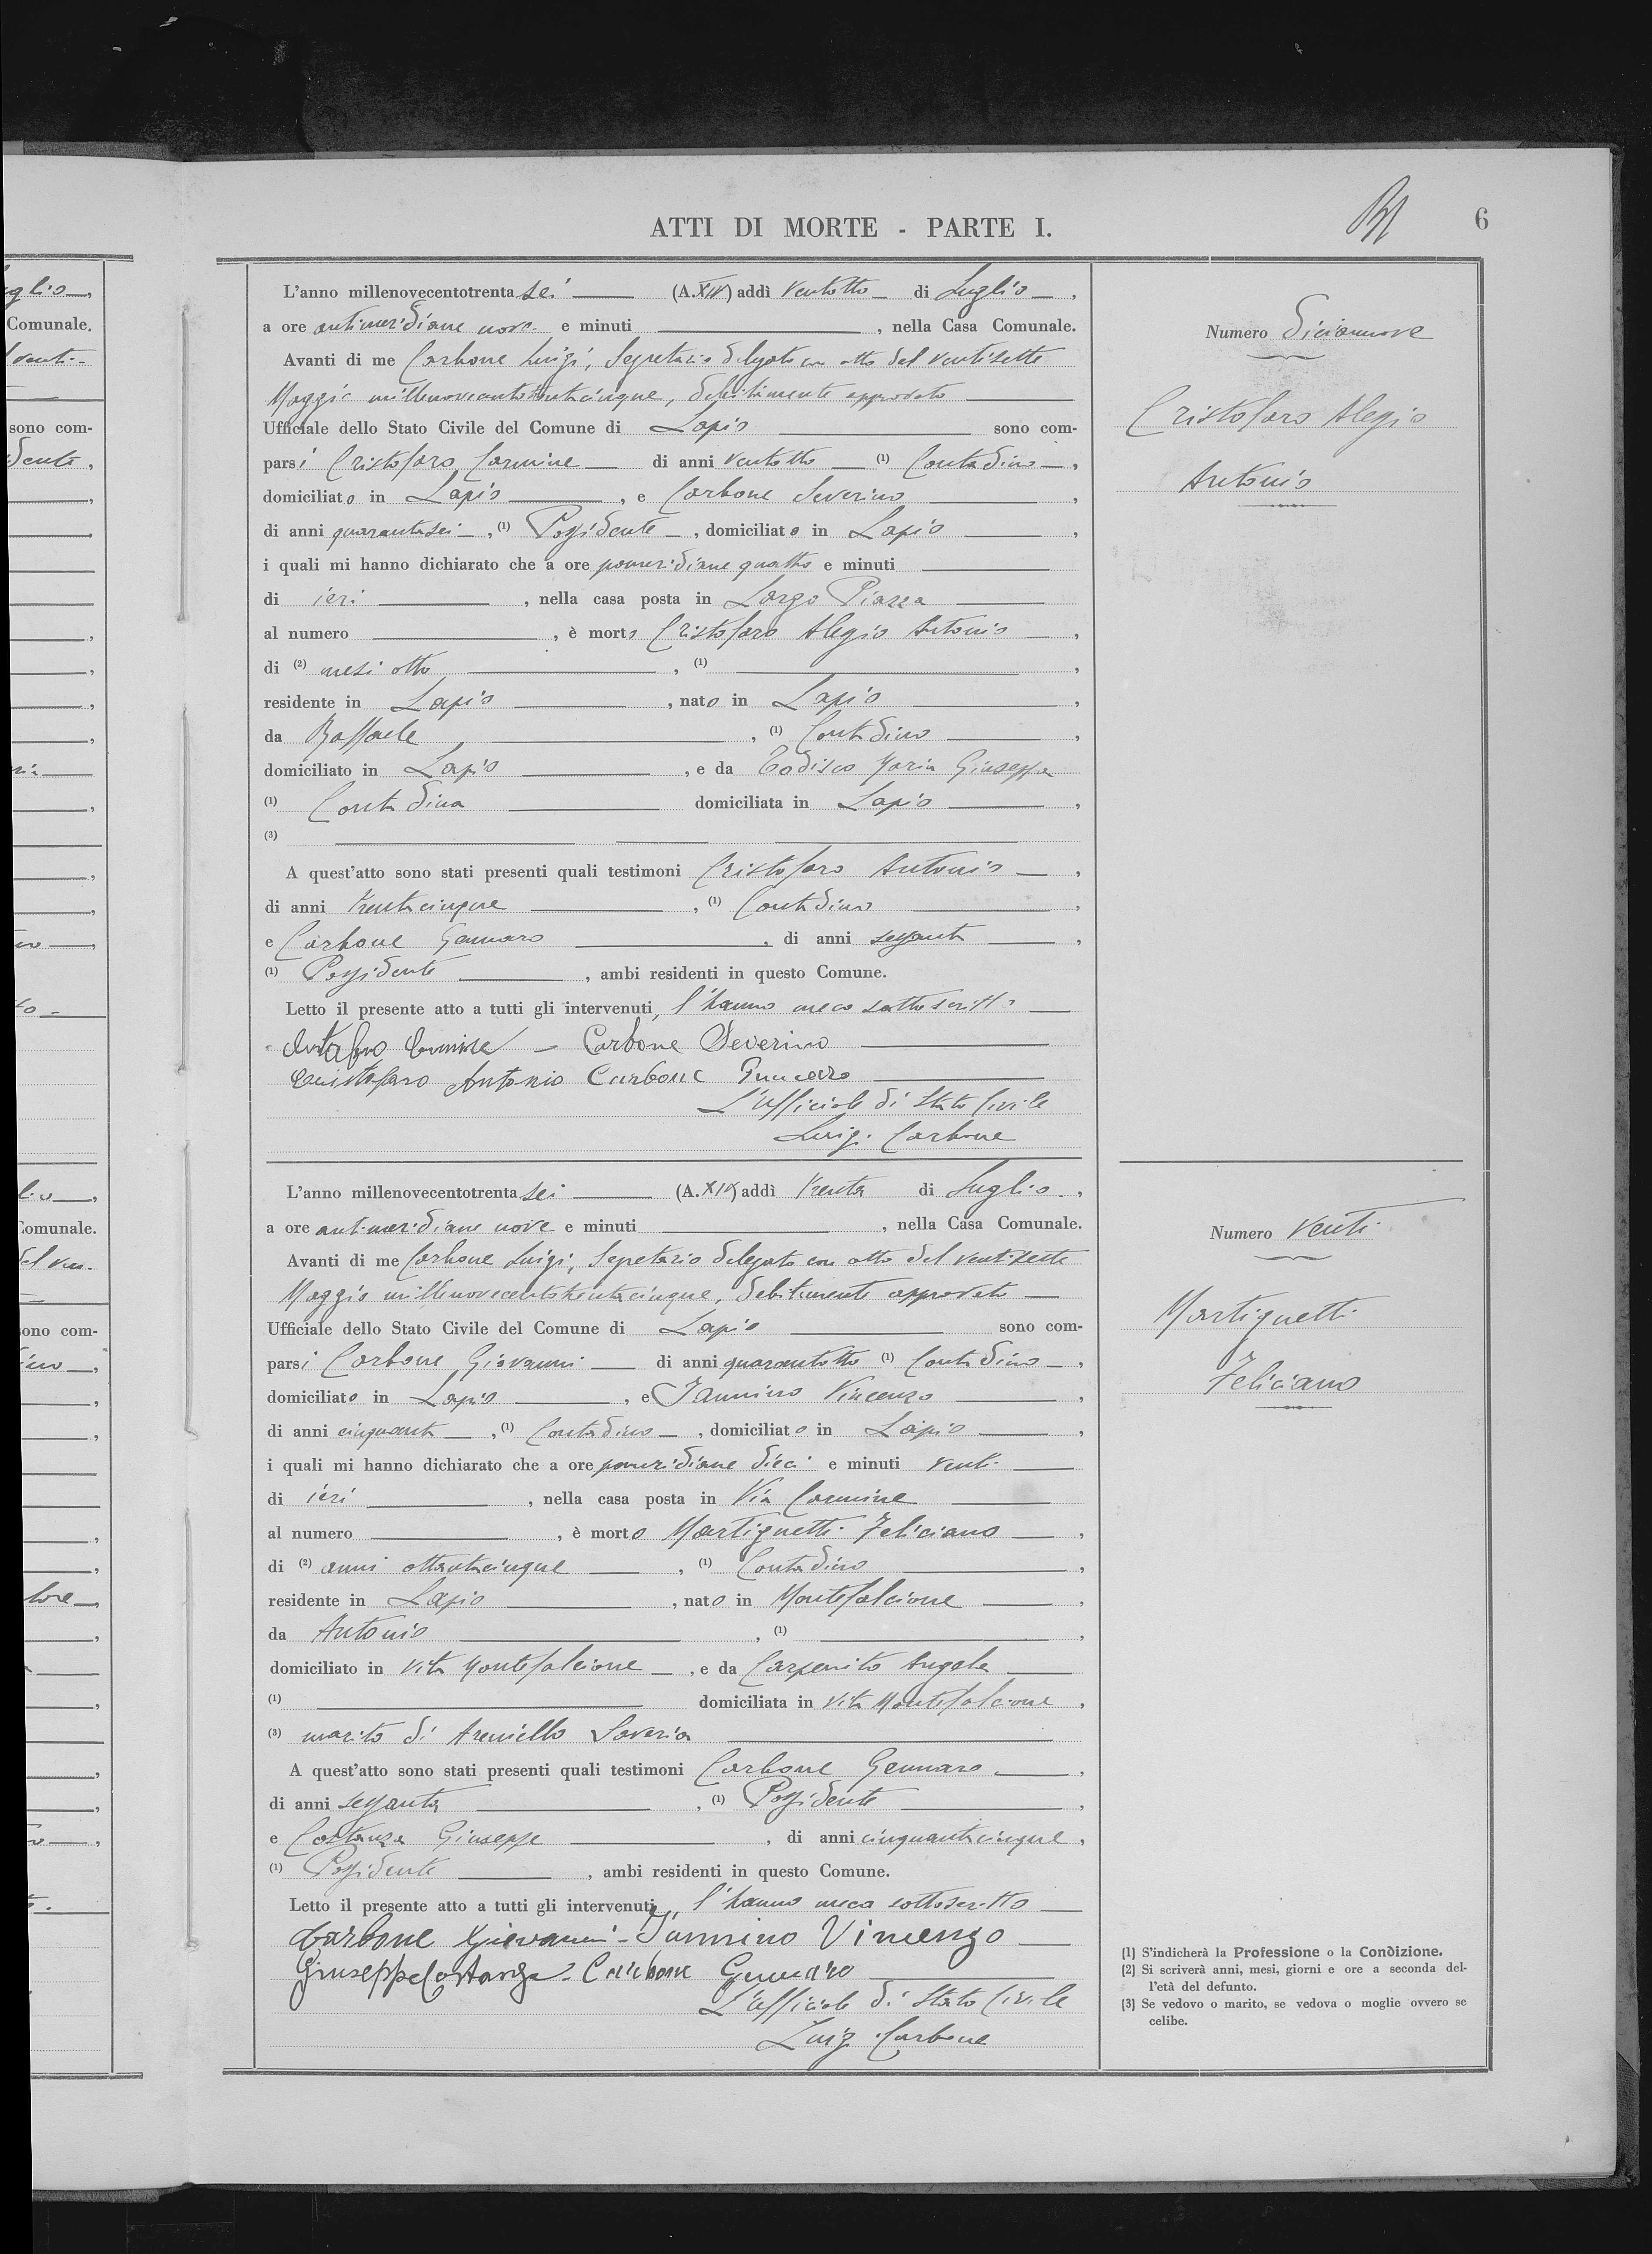 ATTI DI MORTE - PARTE I.
6
L'anno millenovecentotrenta sei (A. XIV) addì ventotto di Luglio,
a ore antimeridiane nove e minuti , nella Casa Comunale.
Avanti di me Carbone Luigi, Segretario delegato con atto del ventisette
Maggio millenovecentotrentacinque, debitamente approvato
Ufficiale dello Stato Civile del Comune di Lapio sono com-
parsi Cristofaro Carmine di anni ventotto (1) Contadino,
domiciliato in Lapio , e Carbone Severino ,
di anni quarantasei , (1) Possidente , domiciliato in Lapio ,
i quali mi hanno dichiarato che a ore pomeridiane quattro e minuti
di ieri , nella casa posta in Largo Piazza
al numero , è morto Cristofaro Alegio Antonio ,
di (2) mesi otto , (1) ,
residente in Lapio , nato in Lapio ,
da Raffaele , (1) Contadino ,
domiciliato in Lapio , e da Codisco Maria Giuseppa
(1) Contadina domiciliata in Lapio ,
(3)
A quest'atto sono stati presenti quali testimoni Cristofaro Antonio ,
di anni trentacinque , (1) Contadino ,
e Carbone Gennaro , di anni sessanta ,
(1) Possidente , ambi residenti in questo Comune.
Letto il presente atto a tutti gli intervenuti, l'hanno meco sottoscritto
Carbone Severino
Cristofaro Antonio Carbone Gennaro
L'Ufficiale di Stato Civile
Luigi Carbone
Numero Diciannove
Cristofaro Alegio
Antonio
L'anno millenovecentotrenta sei (A. XIV) addì trenta di Luglio,
a ore antimeridiane nove e minuti , nella Casa Comunale.
Avanti di me Carbone Luigi, Segretario delegato con atto del ventisette
Maggio millenovecentotrentacinque, debitamente approvato
Ufficiale dello Stato Civile del Comune di Lapio sono com-
parsi Carbone Giovanni di anni quarantotto (1) Contadino,
domiciliato in Lapio , e Iannino Vincenzo ,
di anni cinquanta , (1) Contadino , domiciliato in Lapio ,
i quali mi hanno dichiarato che a ore pomeridiane dieci e minuti venti
di ieri , nella casa posta in Via Carmine
al numero , è morto Martignetti Feliciano ,
di (2) anni ottantacinque , (1) Contadino ,
residente in Lapio , nato in Montefalcione ,
da Antonio , (1) ,
domiciliato in vita Montefalcione , e da Carpenito Angela
(1) domiciliata in vita Montefalcione ,
(3) marito di Areniello Saveria
A quest'atto sono stati presenti quali testimoni Carbone Gennaro ,
di anni sessanta , (1) Possidente ,
e Costanza Giuseppe , di anni cinquantacinque ,
(1) Possidente , ambi residenti in questo Comune.
Letto il presente atto a tutti gli intervenuti, l'hanno meco sottoscritto
Carbone Giovanni - Iannino Vincenzo
Giuseppe Costanza - Carbone Gennaro
L'Ufficiale di Stato Civile
Luigi Carbone
Numero venti
Martignetti
Feliciano
(1) S'indicherà la Professione o la Condizione.
(2) Si scriverà anni, mesi, giorni e ore a seconda del-
l'età del defunto.
(3) Se vedovo o marito, se vedova o moglie ovvero se
celibe.